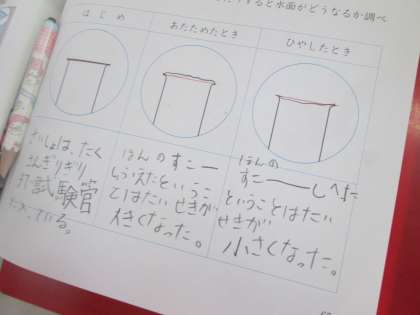 すると水面がどうなるか調べ
はじめ
あたためたとき
ひやしたとき
さいしょは、たく
さんぎりぎり
試験管
いる。
ほんのすこー
しふえたというこ
とはたいせきが
大きくなった。
ほんの
すこーしへった
ということはたい
せきが
小さくなった。